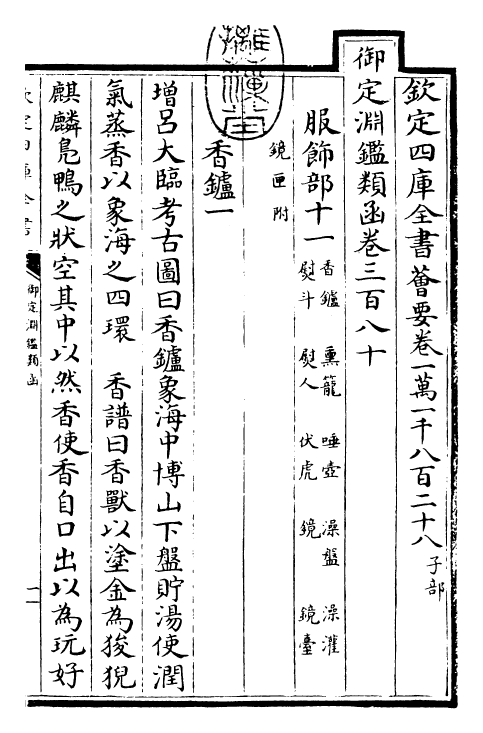 欽定四庫全書薈要卷一萬一千八百二十八 子部
御定淵鑑類函卷三百八十
服飾部十一 香鑪 熏籠 唾壺 澡盤 澡灌
熨斗 熨人 伏虎 鏡 鏡臺
鏡匣附
香鑪一
增呂大臨考古圖曰香鑪象海中博山下盤貯湯使潤
氣蒸香以象海之四環 香譜曰香獸以塗金為狻猊
麒麟鳧鴨之狀空其中以然香使香自口出以為玩好
欽定四庫全書
御定淵鑑類函
一